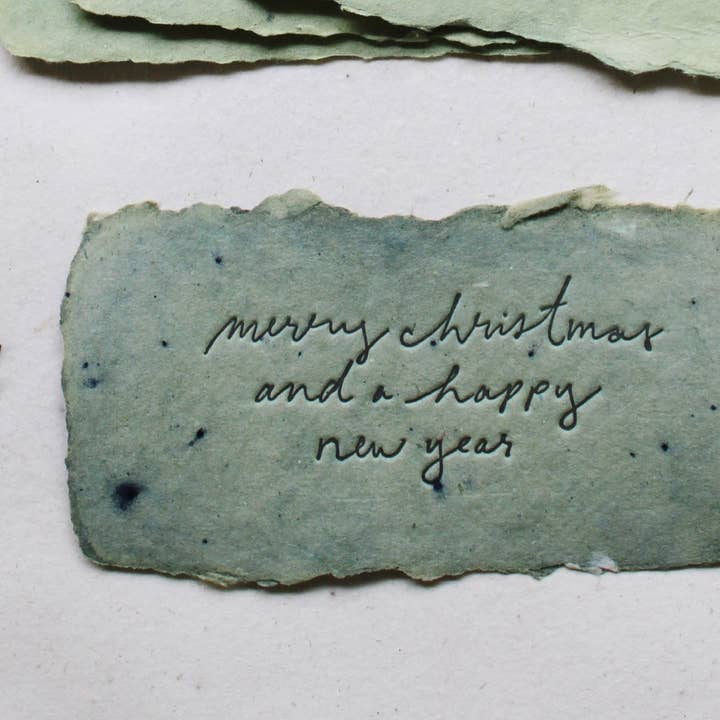 merry christmas
and a happy
new year